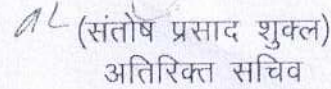 (संतोष प्रसाद शुक्ल)
अतिरिक्त सचिव